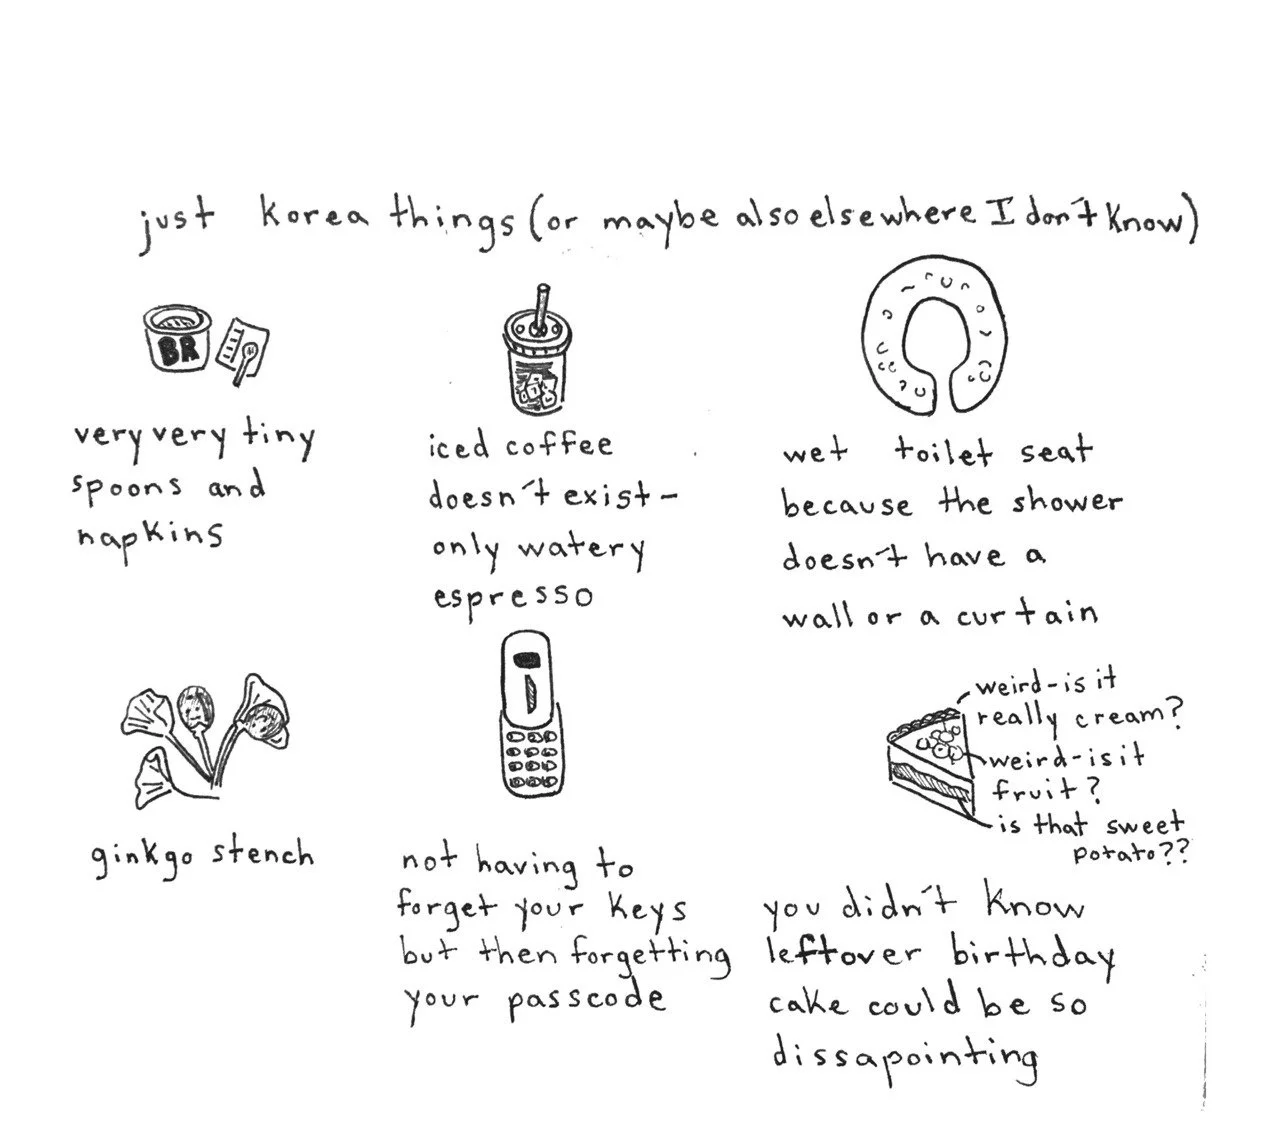 just korea things (or maybe also elsewhere I don't know)
BR
very very tiny
spoons and
napkins
iced coffee
doesn't exist-
only watery
espresso
wet toilet seat
because the shower
doesn't have a
wall or a curtain
ginkgo stench
not having to
forget your keys
but then forgetting
your passcode
weird-is it
really cream?
weird-is it
fruit?
is that sweet
potato??
you didn't know
leftover birthday
cake could be so
dissapointing